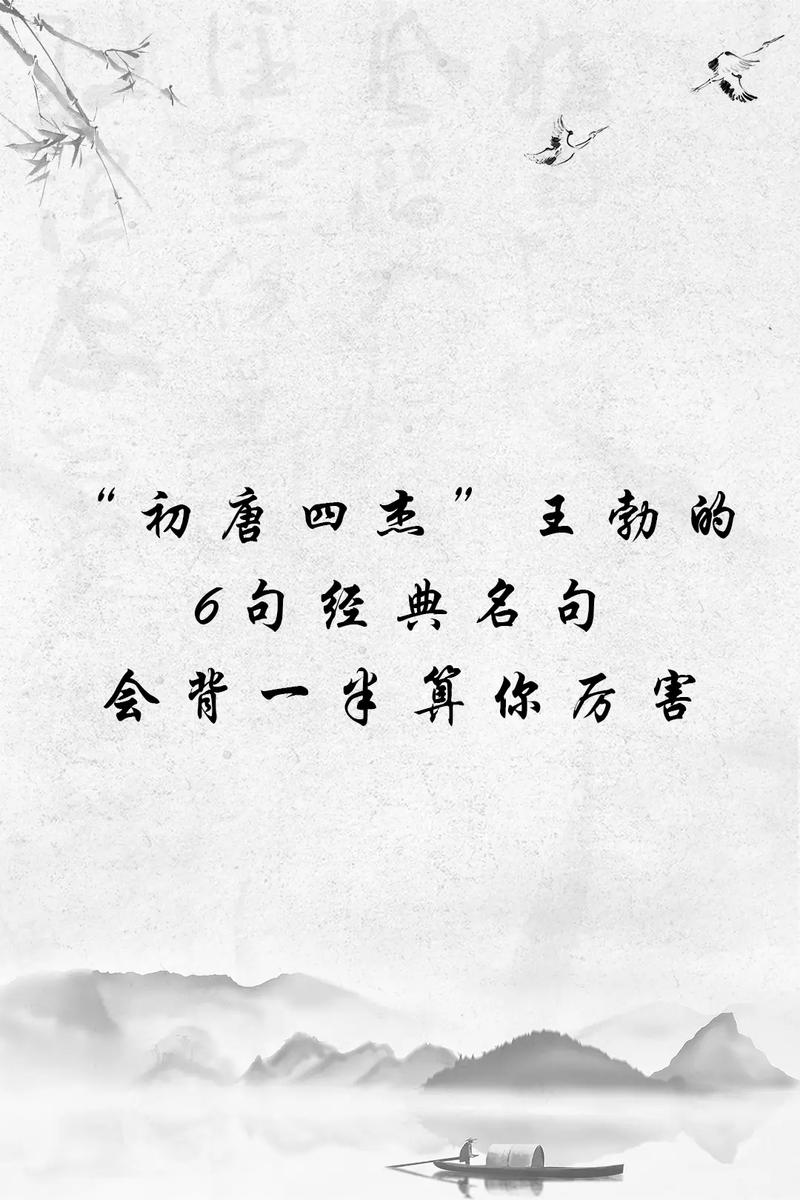 “初唐四杰”王勃的
6句经典名句
会背一半算你厉害